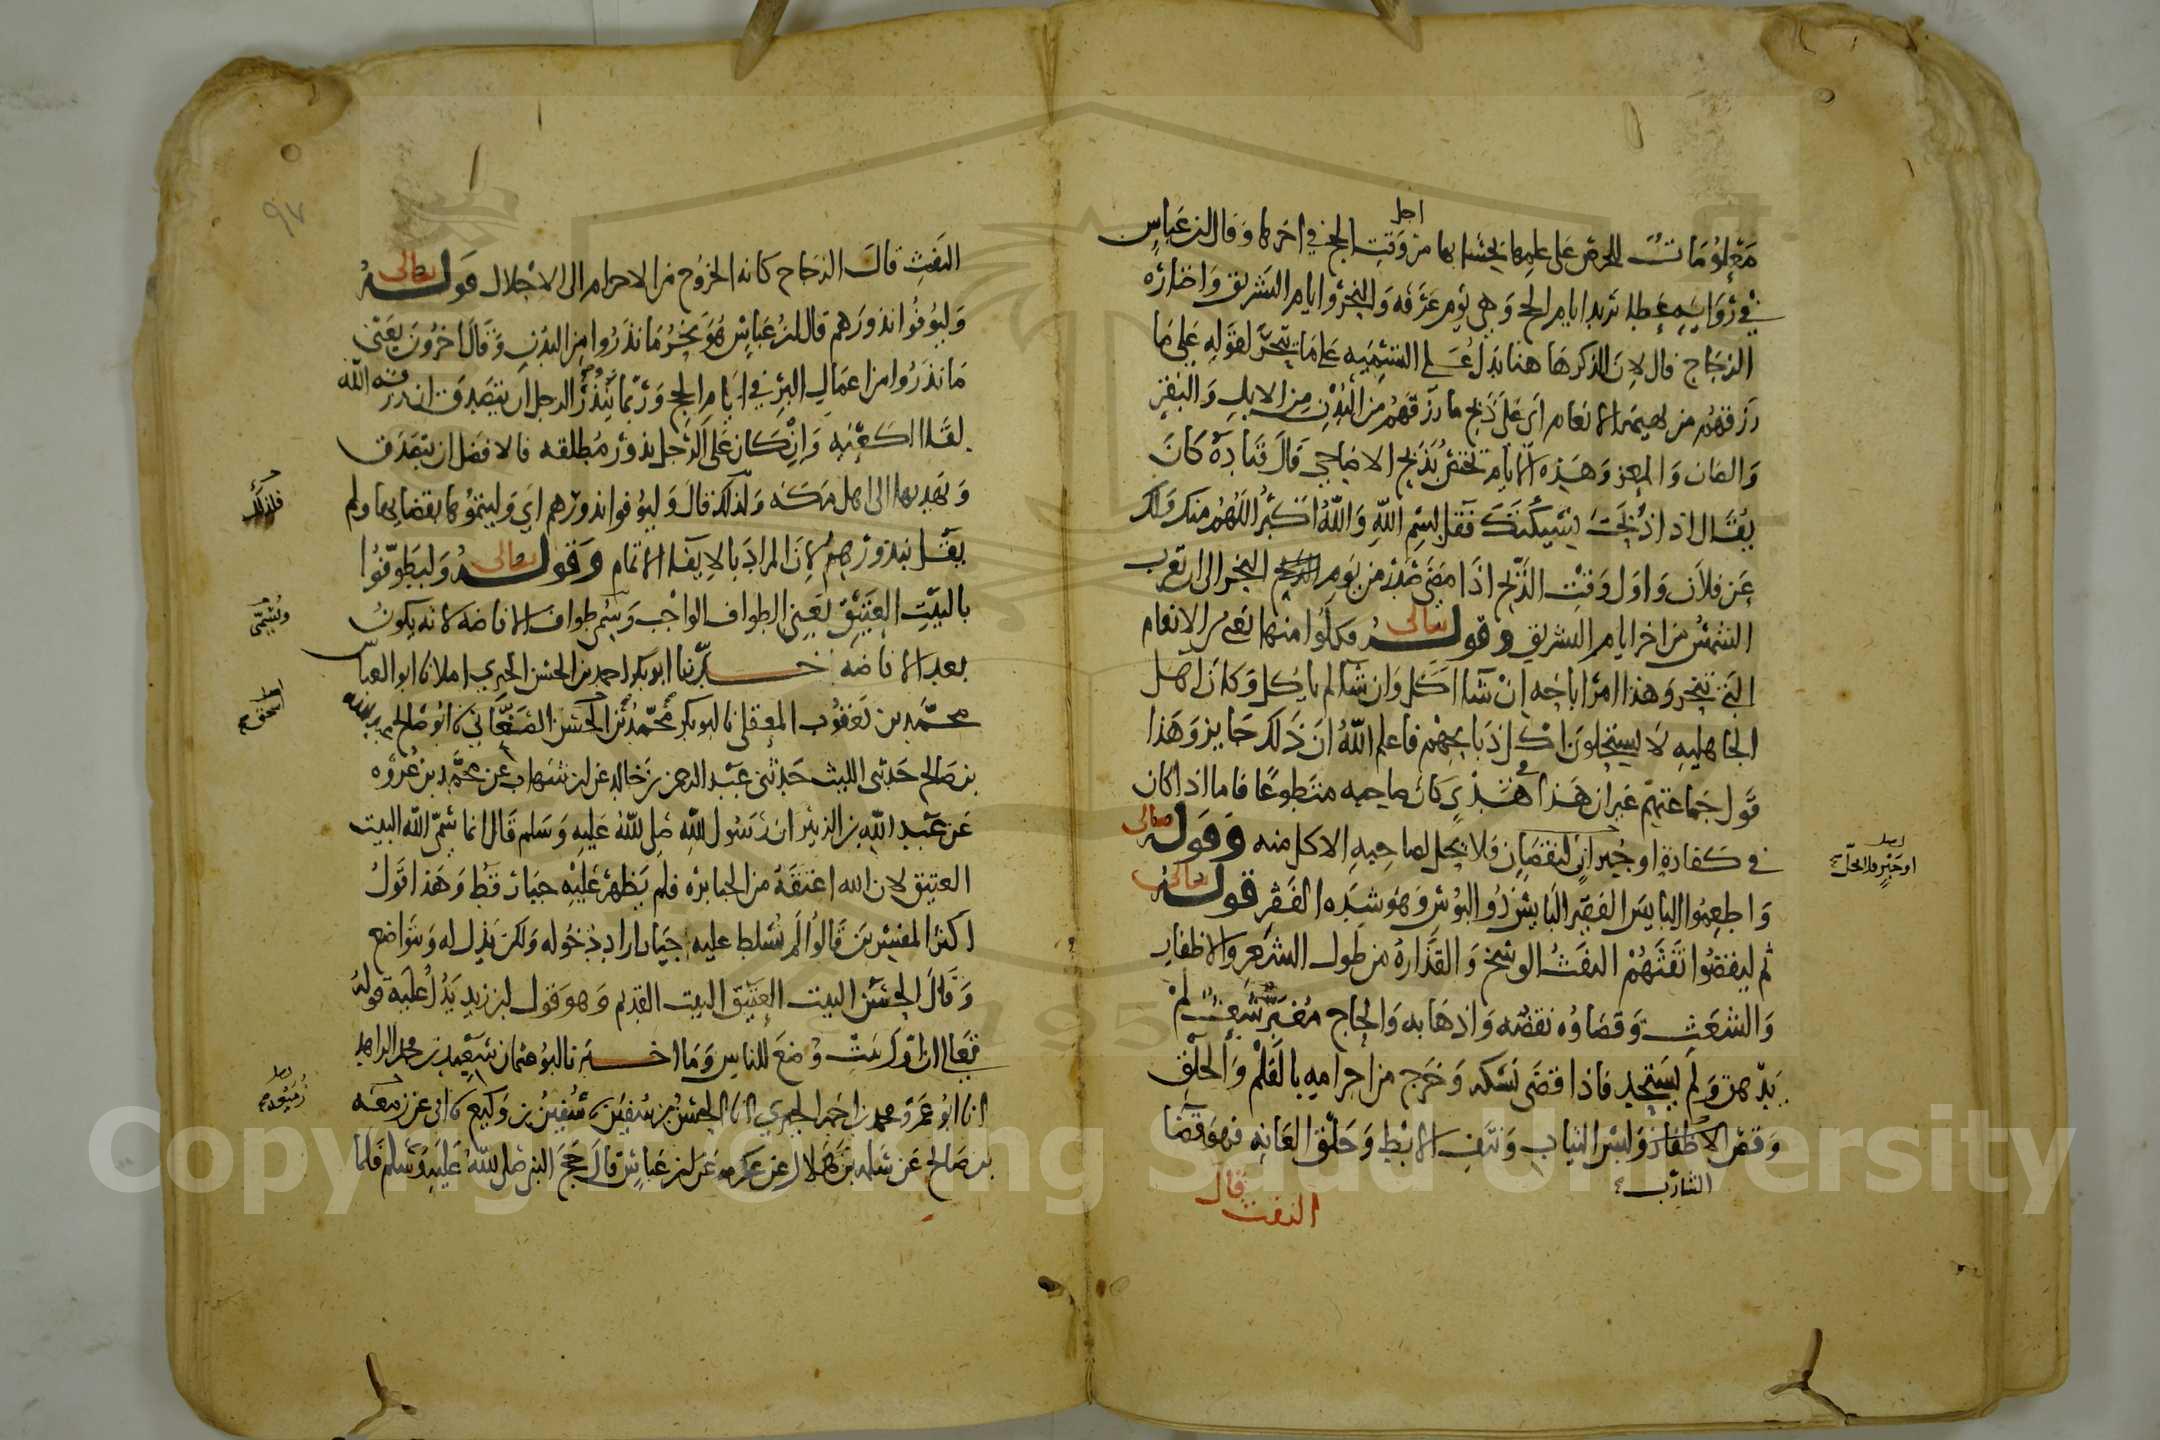 اجل
مَعْلُومَات للحرص على علمها بحسابها من وَقت الحج في اخرها وَقال ابن عَباسٍ
في رِوَايةِ عَطاء يريد ايام الحج وَهي يَوم عَرَفه وَالنحر وايام التشريق وَاختاره
الزجاج قال لاِن الذكر هَا هنا يدل عَلى التسمِيَه عَلى مَا يَنحر لقَولِهِ عَلى مَا
رَزقهُم من بهيمة الانعام اي عَلى ذبح ما رزقهُم من البُدْن مِن الابِلِ وَالبَقرِ
وَالضان وَالمعز وَهَذِه الايام تختص بذبح الاضاحِي قَالَ قتَادة كَانَ
يُقَال اذا ذبحتَ نسيكتك فقل بسم اللهِ وَاللهُ اكبَر اللهُم منك ولك
عَن فلان وَاول وَقتِ الذبْحِ اذا مضى صَدْر من يَومِ النحر الى ان تغرب
الشمس من اخر ايام التشريق وقوله تعالى فكلوا منها يَعني الانعام
التي تنحر وَهذا امر اباحَه ان شآ اكل وَان شآ لم ياكل وَكان اهل
الجاهليةِ لا يستحلون اكل ذبايحهم فاعلم اللهُ ان ذلك جَايز وَهَذا
قَول جَماعتهم غير ان هَذا في هَدْي كان صاحبه متطوعًا فاما اذا كان
في كفارة او جُبْرَانٍ لنقصَان فلا يحل لصاحبهِ الاكل منه وَقوله تعالى
اصل
او جَبْرٍ فلا يحل
وَاطعِمُوا البايسَ الفقير البَايِسُ ذُو البُوسِ وَهوَ شِدة الفقر قوله تعالى
ثم ليقضوا تفثهُمْ التفَثُ الوسَخ وَالقذارة من طول الشعرِ وَالاظفار
وَالشعَثِ وَقضاوُه نقضه وَاذهابه وَالحاج مُغبَرّ شعِث لمْ
يدّهن وَلم يَستحِد فاذا قضَى نسكه وَخرج من احرامِهِ بالقلْم وَالحلقِ
وَقص الاظفار وَلبس الثياب وَنتفِ الابْطِ وَحَلق العَانةِ فهو قضا
الشارب
التفث قال
٩٧
التفَثِ قالَ الزجَاج كانه الخرُوج من الاحرام الى الاحْلال قَوله تعالى
وَليُوفُوا نذورَهم قال ابن عَبَاس هُوَ نحرُ مَا نذَرُوا من البُدْنِ وَقَالَ اخرُونَ يَعْني
مَا نذرُوا من اعمال البِرّ في ايام الحج وَرُبما يَنْذُرُ الرجل ان يتصَدق ان رزقه الله
لقاء الكعْبَهِ وَان كان عَلى الرجل نذور مُطلقه فالافضل ان يتصدق
وَيَهديها الى اهل مكه وَلذلك قالَ وَليُوفوا نذورَهم اي وَليتِمُوهَا بقضايها ولم
فلذلك
يَقل بنذورِهم لان المرادَ بالايفاء الاتمام وَقوله تعالى وَليَطّوّفُوا
بالبَيْتِ العتيقِ يَعني الطواف الواجب وَيُسَمى طواف الافاضه لانه يكونُ
وتُسَمّى
بعد الافاضه اخبرنا ابو بكر احمد بن الحسن الحيري املا انا ابو العباس
محمد بن يَعقوب المعقلي نا ابو بكر محمد بن الحسن الصَغّاني نا ابو صَالح عبد الله
اصل
اسحق
بن صَالح حَدثني الليث حَدثني عَبْد الرحمن بن خالد عن ابن شهاب عن محمد بن عُرْوَه
عَن عَبْدِ اللهِ بن الزبير ان رَسُولَ اللهِ صَلى اللهُ عَليهِ وَسَلم قَال انما سَمّى الله البيت
العتيق لان الله اعتقهُ من الجبابره فلم يَظهر عَليْهِ جبار قط وَهَذا قولُ
اكثر المفسّرين قَالوا لم يُسَلط عليه جبار اراد دُخُوله وَلكن يذِل له وَيتَواضع
وَقَالَ الحسن البيت العتيق البيت القديم وَهوَ قول ابن زيد يَدُلُ عليه قولهُ
تعالى ان اول بيت وُضِعَ للناسِ وَما اخبرنا ابو عثمان سَعِيد بن محمد الزاهد
انا ابو عَمرو محمد بن احمد الحيري انا الحسن بن سُفين نا سُفين بن وَكيع نا ابي عن زمعَه
اصل
زمعَة
بن صَالح عَن سَلمه بن وَهْرَام عن عكرمَه عَن ابن عَباسٍ قالَ حَجّ النبي صَلى اللهُ عَليهِ وَسَلم فلما
Copyright © King Saud University
195